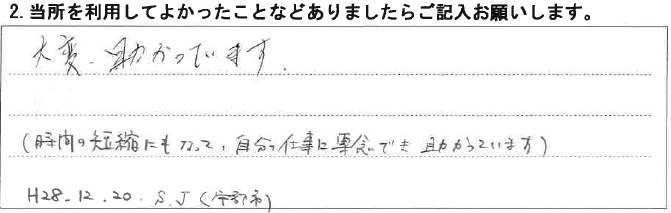 2.当所を利用してよかったことなどありましたらご記入お願いします。
大変、助かっています.
(時間の短縮にもなって、自分の仕事に専念でき 助かっています)
H28.12.20. S.J (宇部市)